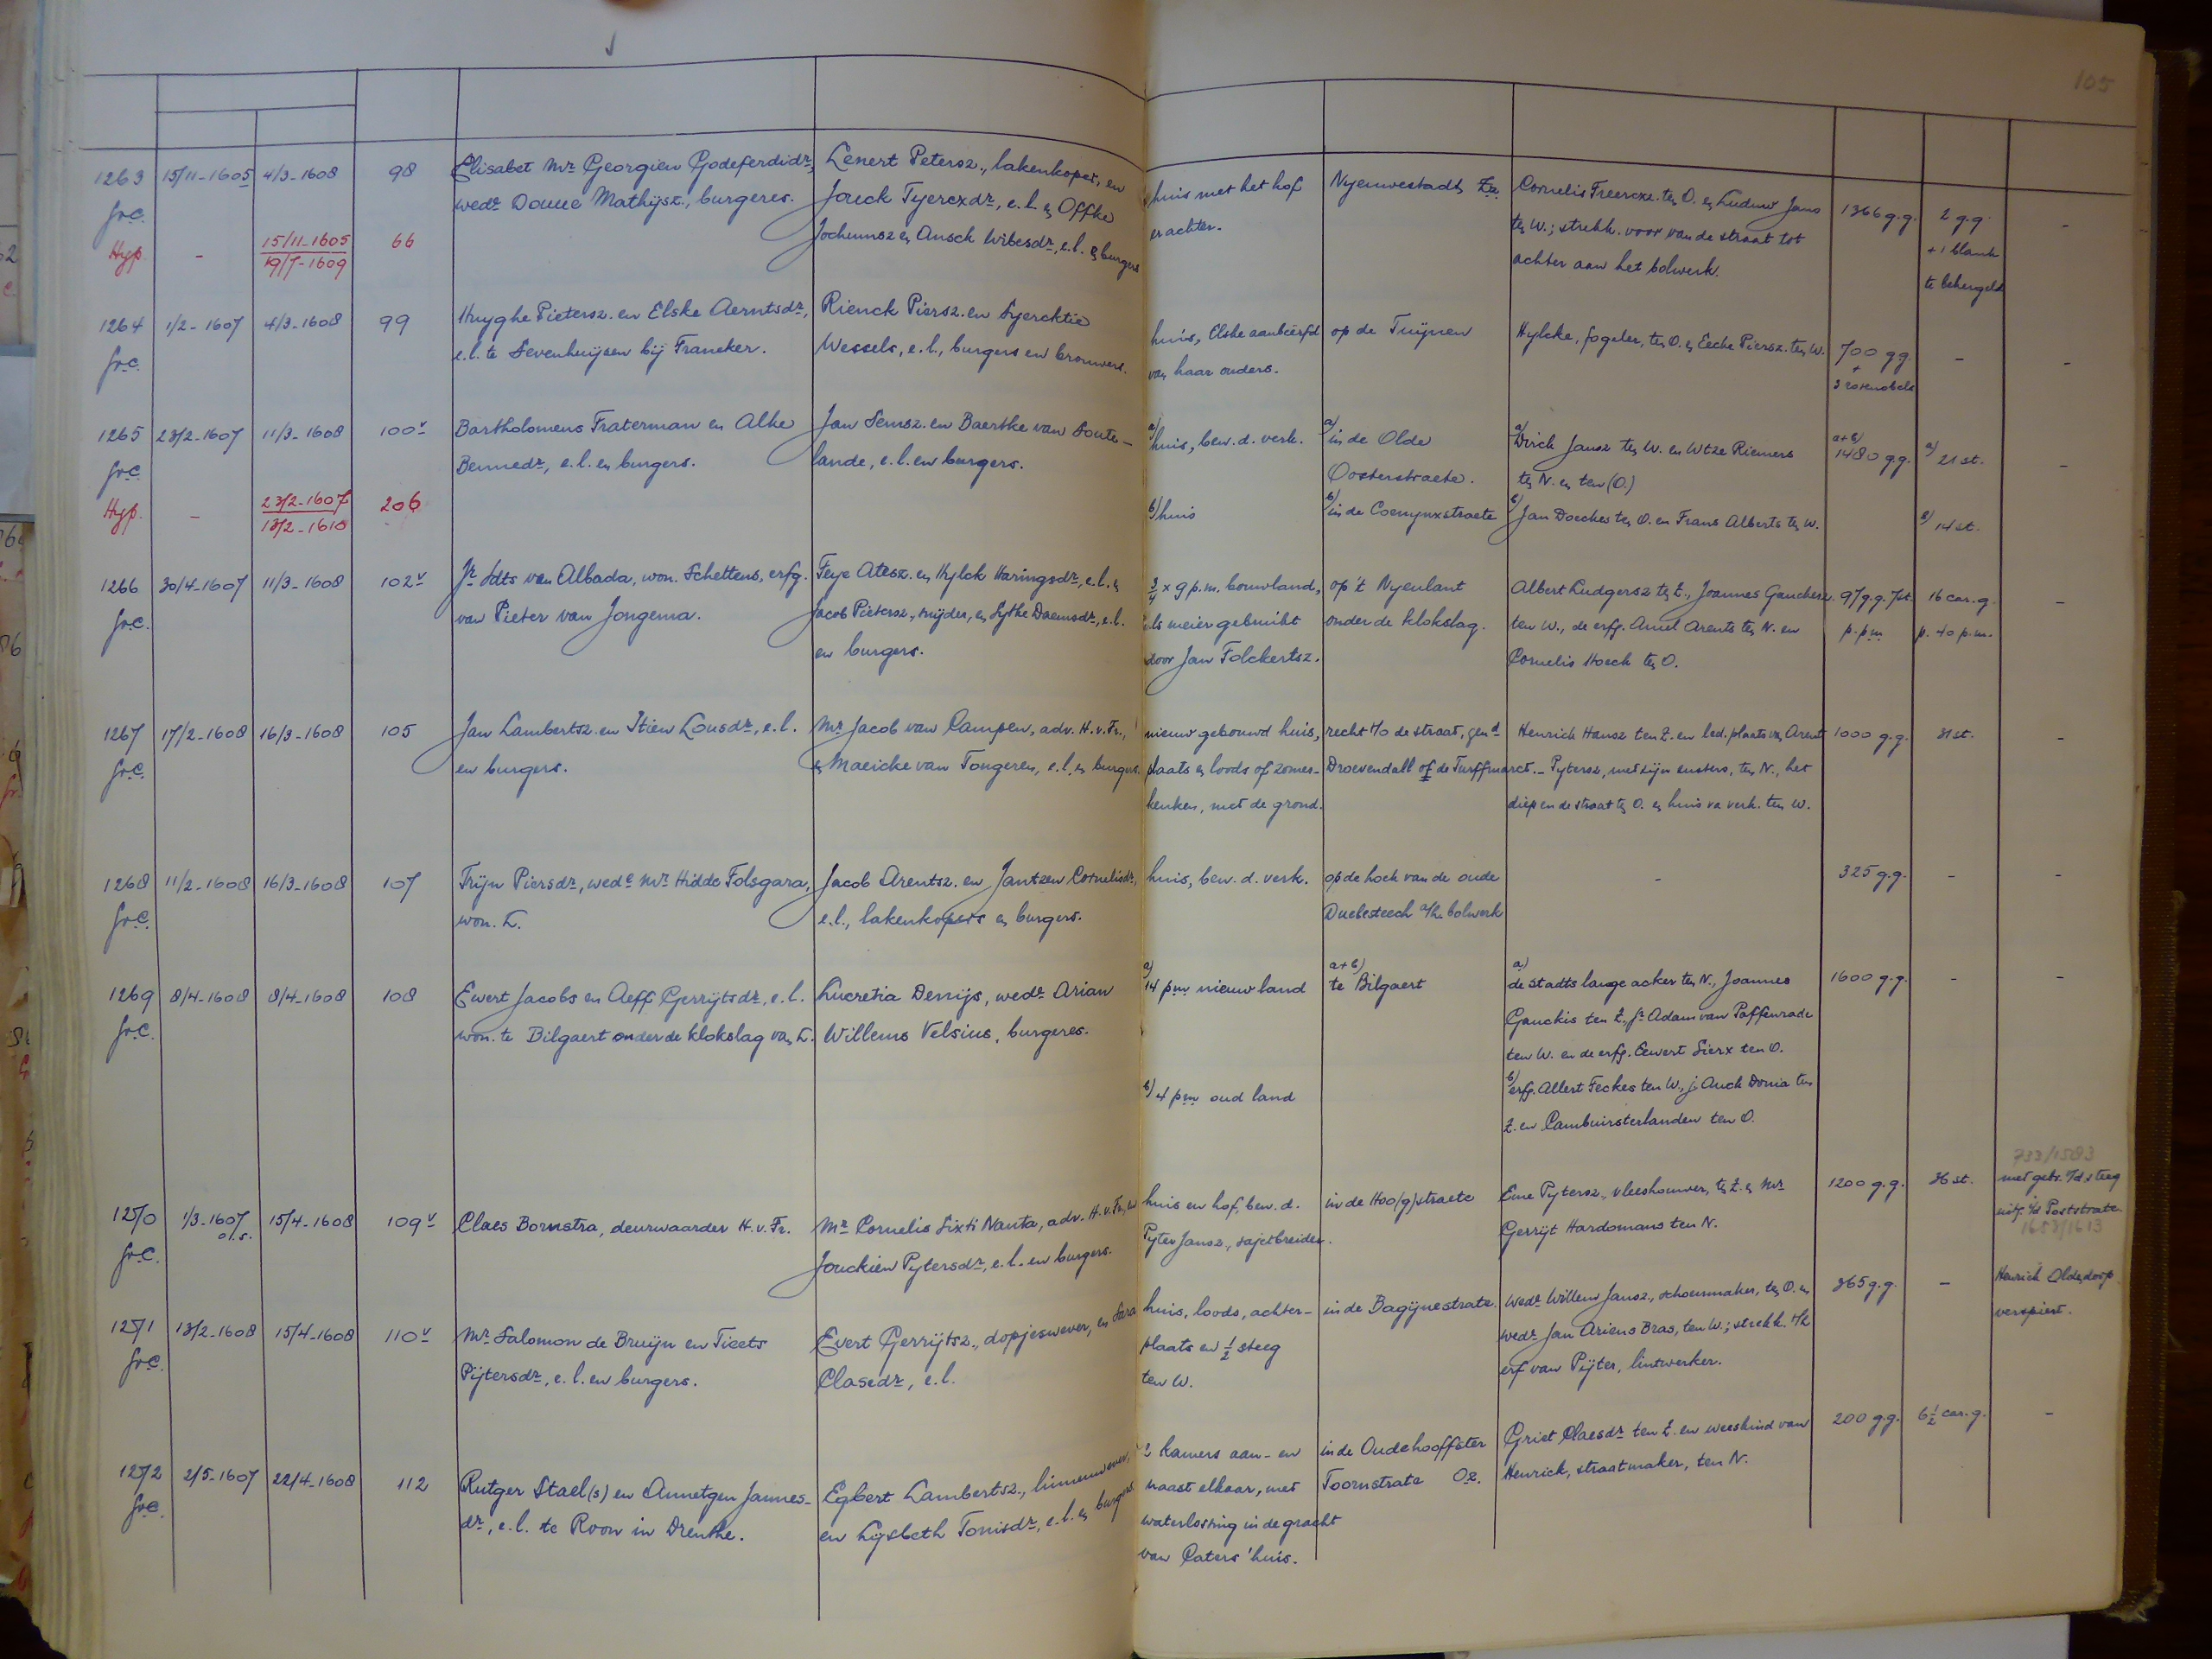 105
1263 15/11-1605 4/3-1608 98 Elisabet Mr Georgien Godeferdidr, Lenert Petersz., lakenkoper, en huis met het hof Nyeuwestadt, Zz. Cornelis Freercxz. ten O. en Luduw Jans 1366 g.g. 2 g.g.
gr.C. wedr Douue Mathijsz., burgeres. Jouck Tyercxdr, e.l. en Offke erachter. ten W.; strekk. voor van de straat tot + 1 blank
Hyp. - 15/11-1605 66 Jochumsz en Ansck Wibesdr, e.l. en burgers achter aan het bolwerk. te behengeld
19/7-1609
1264 1/2-1607 4/3-1608 99 Huyghe Pietersz. en Elske Aerntsdr, Rienck Piersz. en Syercktie huis, Elske aanbeërfd op de Tuijnen Hylcke, fogeler, ten O. en Eecke Piersz. ten W. 700 g.g. - -
gr.C. e.l. te Sevenhuijsen bij Franeker. Wessels, e.l., burgers en brouwers. van haar ouders. +
3 rosenobels
1265 23/2-1607 11/3-1608 100v Bartholomeus Fraterman en Alke Jan Semsz. en Baertke van Soute- a) huis, bew. d. verk. a) in de Olde a) Dirck Jansz ten W. en Wtze Riemers a+b) 1480 g.g. a) 21 st. -
gr.C. Bennedr, e.l. en burgers. lande, e.l. en burgers. Oosterstraete. ten N. en ten (O.)
Hyp. - 23/2-1607 206 b) huis b) in de Coenynxstraete b) Jan Doeckes ten O. en Frans Alberts ten W. b) 14 st.
13/2-1610
1266 30/4-1607 11/3-1608 102v Jr Idts van Albada, won. Schettens, erfg. Feye Atesz. en Hylck Haringsdr, e.l. en 3/4 x 9 p.m. bouwland, op 't Nyeulant Albert Ludgersz ten Z., Joannes Gauchesz. 97 g.g. 7 st. 16 car.g. -
gr.C. van Pieter van Jongema. Jacob Pietersz., snijder, en Sytke Daemsdr, e.l. als meier gebruikt onder de klokslag. ten W., de erfg. Amel Arents ten N. en p.pm p. 40 p.m.
en burgers. door Jan Folckertsz. Cornelis Hoeck ten O.
1267 17/2-1608 16/3-1608 105 Jan Lambertsz. en Itien Lousdr, e.l. Mr Jacob van Campen, adv. H.v.Fr., nieuw gebouwd huis, recht t/o de straat, gend Henrick Hansz ten Z. en led. plaats van Arent 1000 g.g. 31 st. -
gr.C. en burgers. en Maeicke van Tongeren, e.l. en burgers. plaats en loods of zomer- Droevendall of de Turffmarct.- Pytersz, met zijn susters, ten N., het
keuken, met de grond. diep en de straat ten O. en huis va verk. ten W.
1268 11/2-1608 16/3-1608 107 Trijn Piersdr, wede Mr Hidde Folsgara, Jacob Arentsz. en Jantzen Cornelisdr, huis, bew. d. verk. op de hoek van de oude - 325 g.g. - -
gr.C. won. L. e.l., lakenkopers en burgers. Duebesteech a/h bolwerk
1269 8/4-1608 8/4-1608 108 Ewert Jacobs en Aeff Gerrijtsdr, e.l. Lucretia Denijs, wedr Arian a) 14 pm nieuw land a+b) te Bilgaert a) de stadts lange acker ten N., Joannes 1600 g.g. - -
gr.C. won. te Bilgaert onder de klokslag van L. Willems Velsius, burgeres. Gauckis ten Z., jr Adam van Paffenrade
ten W. en de erfg. Eewert Sierx ten O.
b) 4 pm oud land b) erfg. Allert Feckes ten W., j. Auck Donia ten
Z. en Cambuirsterlanden ten O.
733/1583
1270 1/3-1607 15/4-1608 109v Claes Bornstra, deurwaarder H.v.Fr. Mr Cornelis Sixti Nauta, adv. H.v.Fr., en huis en hof, bew. d. in de Hoo(g)straete Eme Pytersz., vleeshouwer, ten Z. en Mr 1200 g.g. 36 st. met gebr. v/d steeg
o.s. Pyter Jansz., sajetbreider. Gerrijt Hardomans ten N. uitg. i/d Poststrate
gr.C. Jouckien Pytersdr, e.l. en burgers. 1658/1613
1271 13/2-1608 15/4-1608 110v Mr Salomon de Bruijn en Ticets Evert Gerrijtsz., dopjeswever, en Sara huis, loods, achter- in de Bagijnestrate. wedr Willem Jansz., schoenmaker, ten O. en 365 g.g. - Henrick Oldedorp
gr.C. Pijtersdr, e.l. en burgers. Clasedr, e.l. plaats en 1/2 steeg wedr Jan Ariens Bras, ten W.; strekk. t/h verspiert.
ten W. erf van Pijter, lintwerker.
1272 2/5-1607 22/4-1608 112 Rutger Stael(s) en Annetgen Jannes- Egbert Lambertsz., linnenwever, 2 kamers aan- en in de Oudehooffster Griet Claesdr ten Z. en weeskind van 200 g.g. 6 1/2 car.g. -
gr.C. dr, e.l. te Roon in Drenthe. en Lijsbeth Tonisdr, e.l. en burgers naast elkaar, met Toornstrate Oz. Henrick, straatmaker, ten N.
waterlossing in de gracht
van Caters' huis.